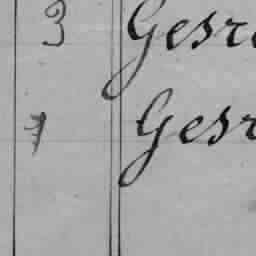 3 Gesr
Gesr